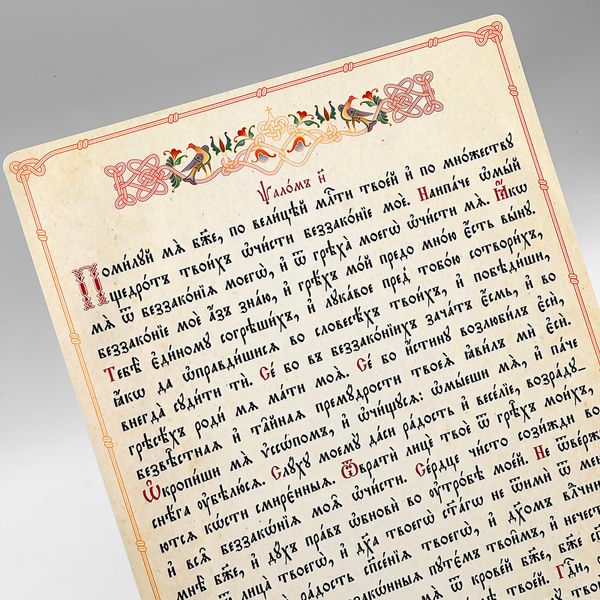 Ѱало́мъ н҃
Поми́лꙋй мѧ̀ бж҃е, по вели́цѣй млⷭ҇ти твое́й и҆ по мно́жествꙋ
щедро́тъ твои́хъ ѡ҆чи́сти беззако́нїе моѐ. Наипа́че ѡ҆мы́й
мѧ̀ ѿ беззако́нїѧ моегѡ̀, и҆ ѿ грѣха̀ моегѡ̀ ѡ҆чи́сти мѧ̀. Ꙗ҆́кѡ
беззако́нїе моѐ а҆́зъ зна́ю, и҆ грѣ́хъ мо́й предо мно́ю є҆́сть вы́нꙋ.
Тебѣ̀ є҆ди́номꙋ согрѣши́хъ, и҆ лꙋка́вое пред̾ тобо́ю сотвори́хъ,
ꙗ҆́кѡ да ѡ҆правди́шисѧ во словесѣ́хъ твои́хъ, и҆ повѣди́ши,
внегда̀ сꙋди́ти тѝ. Се́ бо въ беззако́нїихъ зача́тъ є҆́смь, и҆ во
грѣсѣ́хъ родѝ мѧ̀ ма́ти моѧ̀. Се́ бо и҆́стинꙋ возлюби́лъ є҆сѝ,
безвѣ́стнаѧ и҆ та̑йнаѧ премꙋ́дрости твоеѧ̀ ꙗ҆ви́лъ мѝ є҆сѝ.
Ѡ҆кропи́ши мѧ̀ ѵ҆ссѡ́помъ, и҆ ѡ҆чи́щꙋсѧ: ѡ҆мы́еши мѧ̀, и҆ па́че
снѣ́га ѹ҆бѣлю́сѧ. Слꙋ́хꙋ моемꙋ̀ да́си ра́дость и҆ весе́лїе, возра́дꙋ-
ютсѧ кѡ́сти смире́нныѧ. Ѿвратѝ лицѐ твоѐ ѿ грѣ̑хъ мои́хъ,
и҆ всѧ̑ беззакѡ́нїѧ моѧ̑ ѡ҆чи́сти. Се́рдце чи́сто сози́жди во
мнѣ̀ бж҃е, и҆ дꙋ́хъ пра́въ ѡ҆бновѝ во ѹ҆тро́бѣ мое́й. Не ѿве́рж
лица̀ твоегѡ̀, и҆ дх҃а твоегѡ̀ ст҃а́гѡ не ѿимѝ ѿ мен
ра́дость спⷭ҇е́нїѧ твоегѡ̀, и҆ дх҃омъ влⷣчни
беззакѡ́нныѧ пꙋте́мъ твои̑мъ, и҆ нечест
мѧ̀ ѿ крове́й бж҃е, бж҃е сп
Гдⷭ҇и,